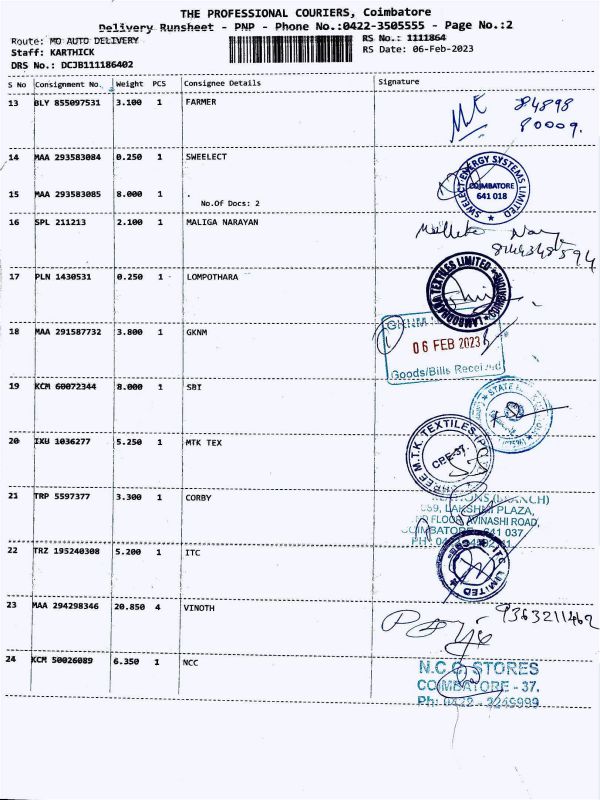 THE PROFESSIONAL COURIERS, Coimbatore
Delivery Runsheet - PNP - Phone No.:0422-3505555 - Page No.:2
Route: MO AUTO DELIVERY
RS No.: 1111864
Staff: KARTHICK
RS Date: 06-Feb-2023
DRS No.: DCJB111186402
S No Consignment No. Weight PCS Consignee Details Signature
13 BLY 855097531 3.100 1 FARMER
84898
80009.
14 MAA 293583084 0.250 1 SWEELECT
SWELECT ENERGY SYSTEMS LIMITED
COIMBATORE
641 018
15 MAA 293583085 8.000 1 .
No.Of Docs: 2
16 SPL 211213 2.100 1 MALIGA NARAYAN
17 PLN 1430531 0.250 1 LOMPOTHARA
TEXTILES LIMITED
18 MAA 291587732 3.800 1 GKNM
GKNM
06 FEB 2023
Goods/Bills Received
19 KCM 60072344 8.000 1 SBI
STATE
20 IXU 1036277 5.250 1 MTK TEX
SHREE M.T.K. TEXTILES (P)
CBE-37.
21 TRP 5597377 3.300 1 CORBY
(BRANCH)
LAKSHMI PLAZA,
FLOOR, AVINASHI ROAD,
COIMBATORE - 641 037
22 TRZ 195240308 5.200 1 ITC
ITC LIMITED
23 MAA 294298346 20.850 4 VINOTH
9363211462
24 KCM 50026089 6.350 1 NCC
N.C.C. STORES
COIMBATORE - 37.
Ph: 0422 - 3245999